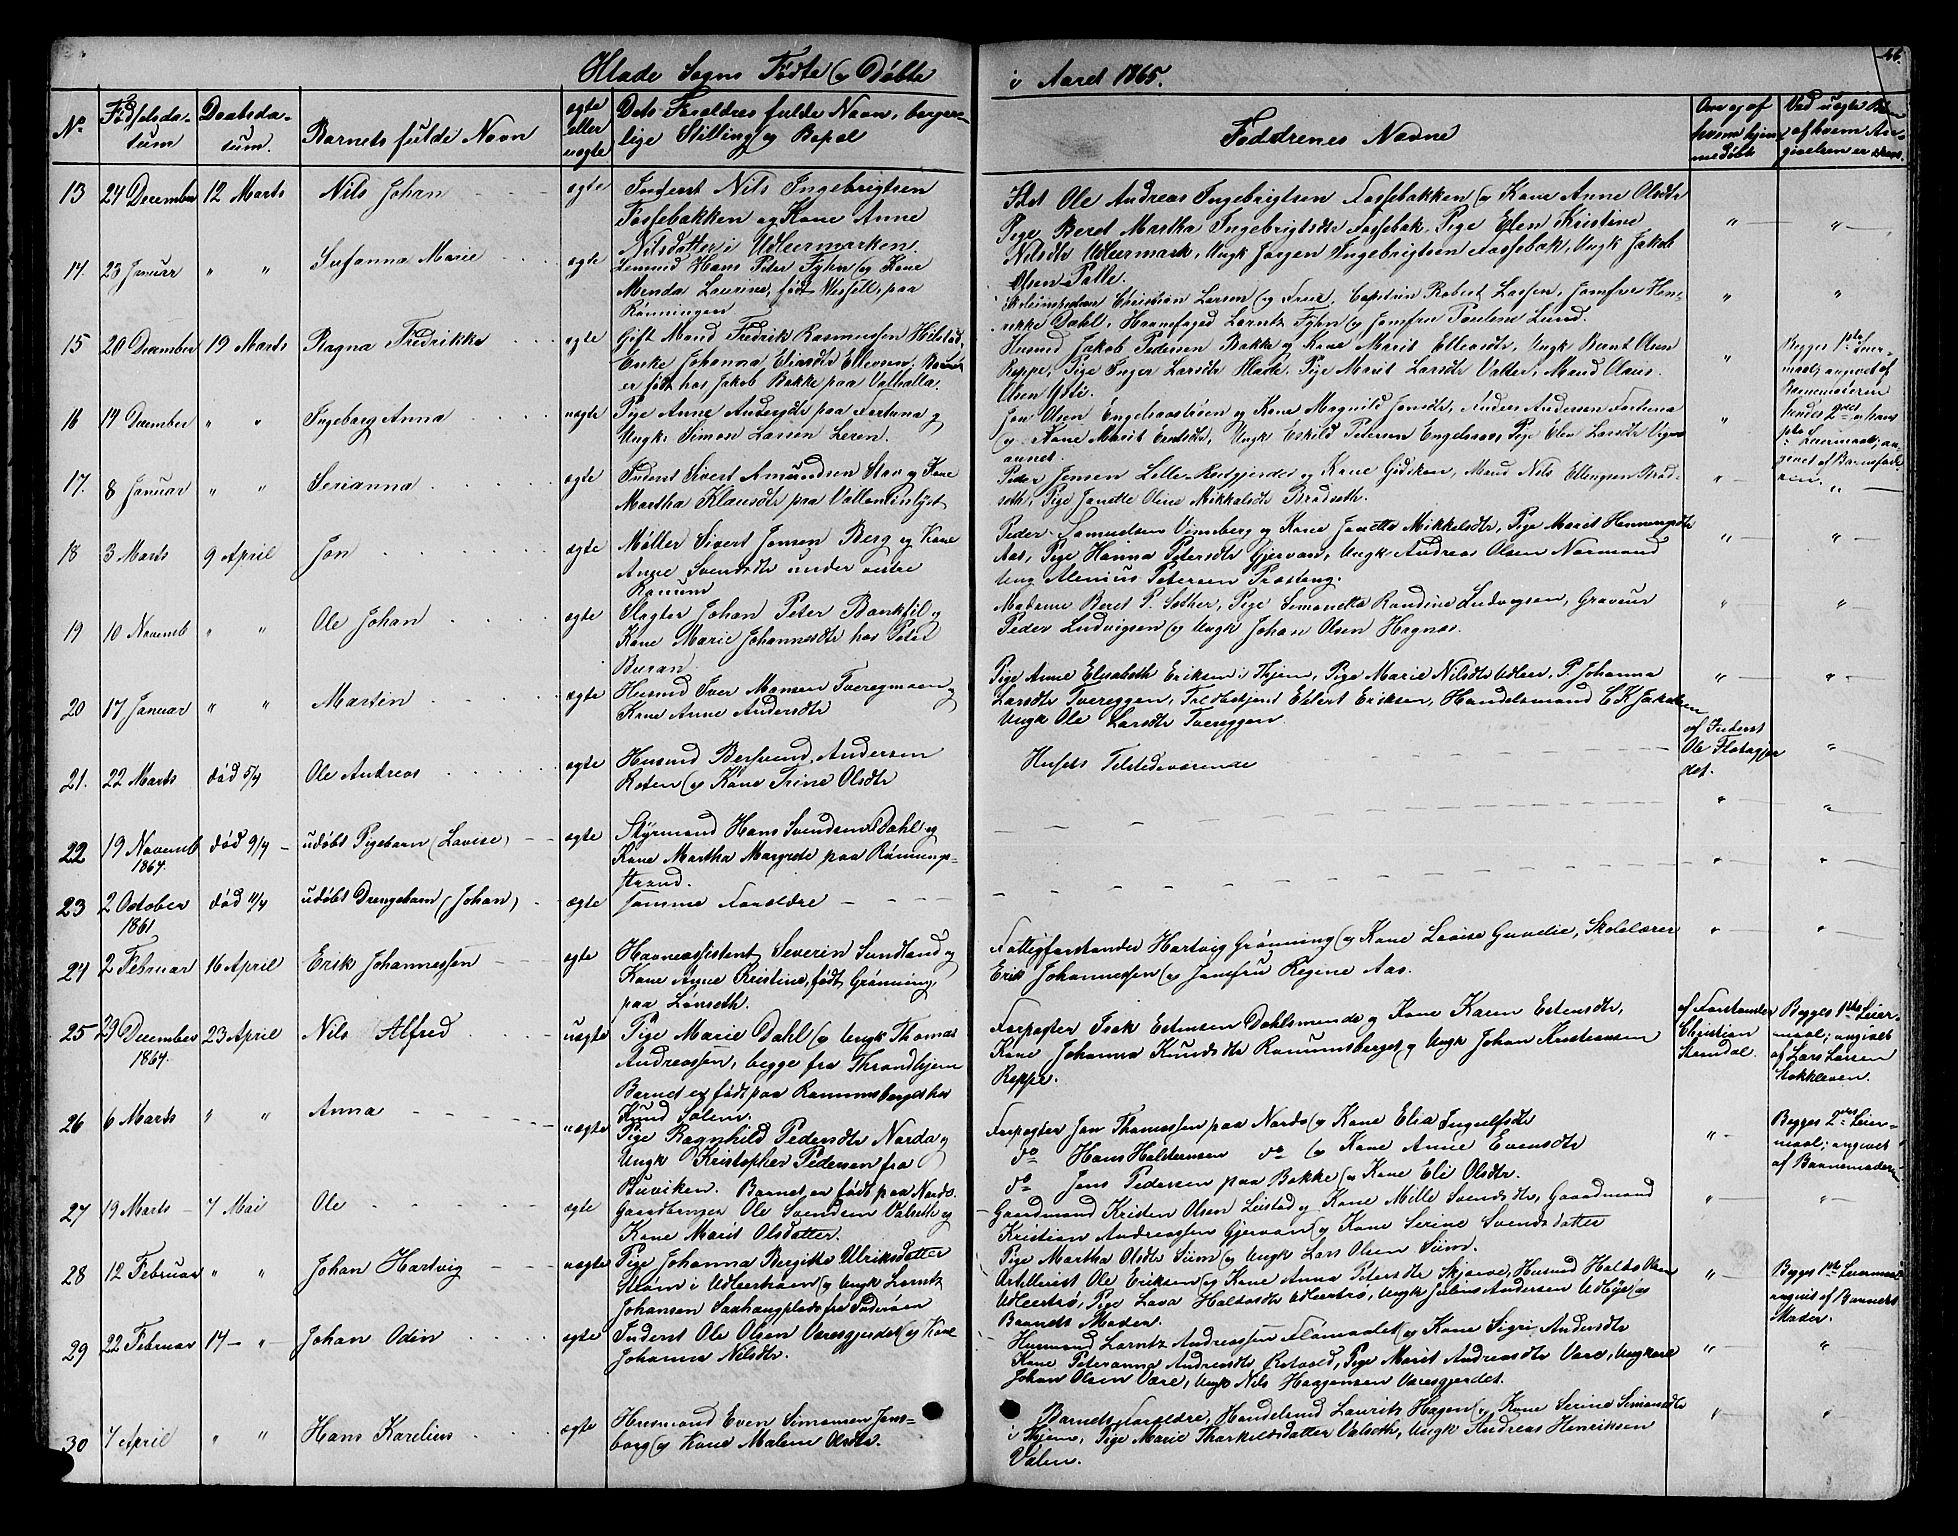 Hlade Sogns Fødte og Døbte
i Aaret 1865.
46.
No
Fødselsda-
tum
Daabsda-
tum.
Barnets fulde Navn
ægte
eller
uægte
Dets Forældres fulde Navn, borger-
lige Stilling og Bopæl
Faddrenes Navne
Om og af
hvem hjem-
medøbt
Ved uægte Børn
af hvem An-
givelsen er skeet.
13 24 December 12 Marts Nils Johan ægte
Inderst Nils Ingebrigtsen
Fossebakken og Kone Anne
Nilsdatter i Udleermarken.
Sdst Ole Andreas Ingebrigtsen Fossebakken og Kone Anne Olsdtr
Pige Beret Martha Ingebrigtsdtr Fossebak, Pige Elen Kristine
Nilsdtr Udleermark, Ungk Jørgen Ingebrigtsen Fossebak, Ungk Jakob
Olsen Palle.
14. 23 Januar " " Susanna Marie ægte
Hans Peter Fyhn og Kone
Menda Laurine, født Wessell, paa
Rønningen
Christian Larsen og Frue, Captein Robert Lassen, Jomfru Hen-
rikke Dahl, Havnefoged Lorntz Fyhn og Jomfru Pauline Lund.
15 20 December 19 Marts Ragna Fredrikke ægte
Gift Mand Fredrik Rasmussen Hilstad,
Enke Johanna Eliasdtr Ellevsen; Barnet
er født hos Jakob Bakke paa Valhalla.
Husmd Jakob Pedersen Bakke og Kone Marit Ellevsdtr, Ungk Bernt Olsen
Reppe, Pige Inger Larsdtr Hlade, Pige Marit Larsdtr Valter, Mand Olaus
Olsen Yste.
Begges 1ste Leier-
maal; angivet af
Barnemoderen
16 14 December " " Ingeborg Anna uægte
Pige Anne Andersdtr paa Fortuna og
Ungk: Simon Larsen Leren.
Jon Olsen Engelsaasløsen og Kone Magnild Jonsdtr, Anders Andersen Fortuna
og Kone Marit Endsdtr, Ungk Eskild Petersen Engelsaas, Pige Elen Larsdtr
Hendes 2det og hans
1ste Leiermaal; an-
givet af Barnefad-
eren.
17. 8 Januar " " Serianna ægte
Inderst Sivert Amundsen Stav og Kone
Martha Klausdtr paa Vallentinlyst
Peder Jensen Lille-Rotgjerdet og Kone Gjertrud, Mand Nils Ellingsen Brød-
seth, Pige Janette Oline Mikkelsdtr Brødseth.
18 3 Marts 9 April Jon ægte
Møller Sivert Jonsen Berg og Kone
Anne Svendsdtr under vestre
Ranum
Peder Samuelsen Vinnberg og Kone Janetta Mikkelsdtr, Pige Marit Henningsdtr
Aas, Pige Hanna Petersdtr Gjervan, Ungk Andreas Olsen Normand
Ung Alenius Petersen Præsteng.
19 10 Novemb " " Ole Johan ægte
Slagter Johan Peter Bankfil og
Kone Marie Johannesdtr hos Peter
Buran.
Madame Beret P. Sather, Pige Simonetta Randine Ludvigsen, Graveur
Peder Ludvigsen og Ungk Johan Olsen Hagnæs.
20 17 Januar " " Martin ægte
Husmd Iver Monsen Tveregmoen og
Kone Anne Andersdtr
Pige Anne Elisabeth Eriksen i Thjem, Pige Marie Nilsdtr Udleer, P. Johanna
Larsdtr Tvereggen, Toldbetjent Edlert Eriksen, Handelsmand C K Jakobsen
Ungk Ole Larsdtr Tvereggen
21. 22 Marts død 5/4 Ole Andreas ægte
Husmd Bersvend Andersen
Roten og Kone Trine Olsdtr
Husets Tilstedeværende
af Inderst
Ole Flatagjer
det.
22 19 Novemb død 9/4 udøbt Pigebarn (Lovise) ægte
1864.
Styrmand Hans Svendsen Dahl og
Kone Martha Margrete paa Rønnings-
strand.
23 2 October død 11/4 udøbt Drengebarn (Johan) ægte
1861
Samme Forældre
24 2 Februar 16 April Erik Johannessen ægte
Havneassistent Severin Sundland og
Kone Anne Kristine, født Grønning,
paa Lønseth.
Fattigforstander Hartvig Grønning og Kone Lovise Gurelie, Skolelærer
Erik Johannessen og Jomfru Regine Aas.
25 29 December 23 April Nils Alfred uægte
1864.
Pige Marie Dahl og Ungk Thomas
Andreassen, begge fra Throndhjem
Barnet er født paa Ranumsberget hos
Knud Solem.
Forpagter Isak Estensen Dahlsmende og Kone Karen Estensdtr,
Kone Johanna Knudsdtr Ranumsberget og Ungk Johan Kristiansen
Reppe.
af Forstander
Christian
Stendal.
Begges 1ste Leier-
maal; angivet
af Lars Larsen
Stokkleven.
26 6 Marts " " Anna uægte
Pige Ragnhild Pedersdtr Norda og
Ungk Kristopher Pedersen fra
Buviken. Barnet er født paa Nordo.
Forpagter Jon Thomassen paa Nordo og Kone Elia Ingulfsdtr
do Hans Haldorsen do og Kone Anne Evensdtr
do Jens Pedersen paa Bakke og Kone Eli Olsdtr.
Begges 2det Leier-
maal; angivet
af Barnemoderen
27 19 Marts 7 Mai Ole ægte
Gaardbruger Ole Svendsen Valseth og
Kone Marit Olsdatter.
Gaardmand Kristen Olsen Leistad og Kone Mille Svendsdtr, Gaardmand
Kristian Andreassen Gjervan og Kone Serine Svendsdatter
Pige Martha Olsdtr Siim og Ungk Lars Olsen Siim.
28 12 Februar " " Johan Hartvig uægte
Pige Johanna Birgitte Ulriksdatter
Strøm i Udleerhavn og Ungk Lorntz
Johansen Saxhaugplads fra Inderøen
Artillerist Ole Eriksen og Kone Anna Petersdtr Skjærve, Husmd Haltor Olsen
Udleertrø, Pige Lava Haltorsdtr Udleertrø, Ungk Julius Andersen Udhöie og
Barnets Moder.
Begges 1ste Leiermaal
angivet af Barnets
Moder.
29 22 Februar 14 " Johan Odin ægte
Inderst Ole Olsen Væresgjerdet og Kone
Johanna Nilsdtr.
Husmand Lorntz Andreassen Flamaalet og Kone Sigri Andersdtr
Kone Peteranna Andreasdtr Rotvold, Pige Marit Andreasdtr Være, Ungkarl
Johan Olsen Være, Ungk Nils Haagensen Væresgjerdet.
30 7 April " " Hans Karelius ægte
Husmand Even Simonsen Jons-
borg og Kone Malene Olsdtr.
Barnets Forældre, Handelsmd Laurits Hagen og Kone Serine Simonsdtr
i Thjem, Pige Marie Tharkildsdatter Valseth, Ungk Andreas Henriksen
Valen.